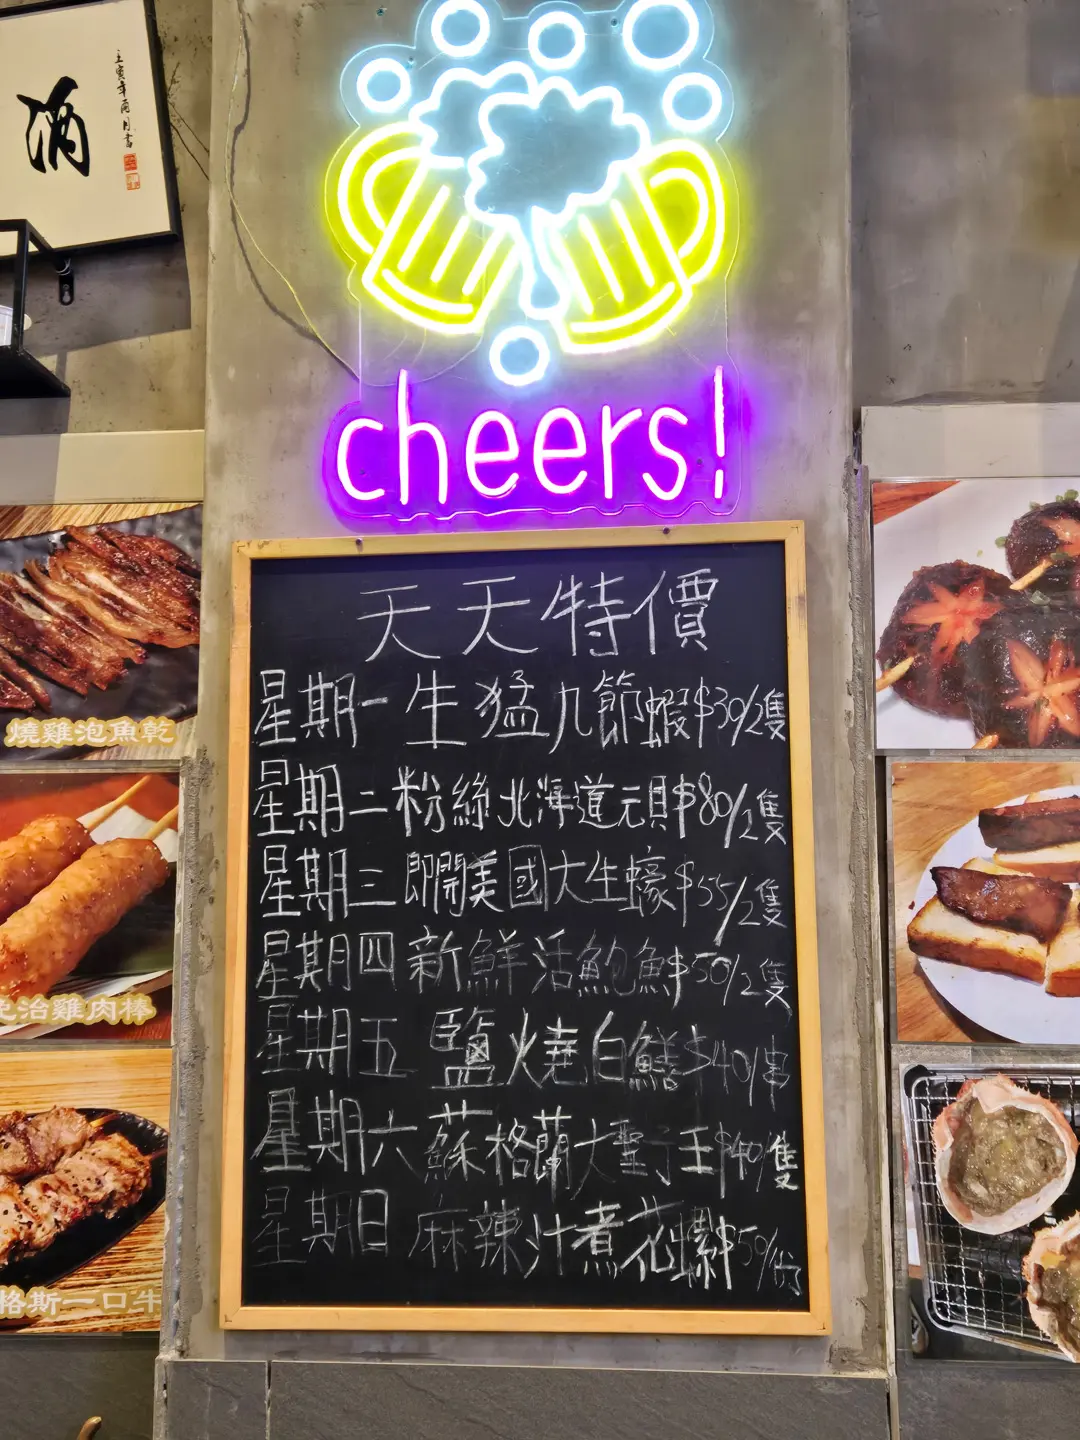 酒
壬寅年酉月書
cheers!
天天特價
星期一生猛九節蝦$39/2隻
星期二粉絲北海道元貝$80/2隻
星期三即開美國大生蠔$55/2隻
星期四新鮮活鮑魚$50/2隻
星期五鹽燒白鱔$40/串
星期六蘇格蘭大聖子王$40/隻
星期日麻辣汁煮花螺$50/份
燒雞泡魚乾
免治雞肉棒
格斯一口牛